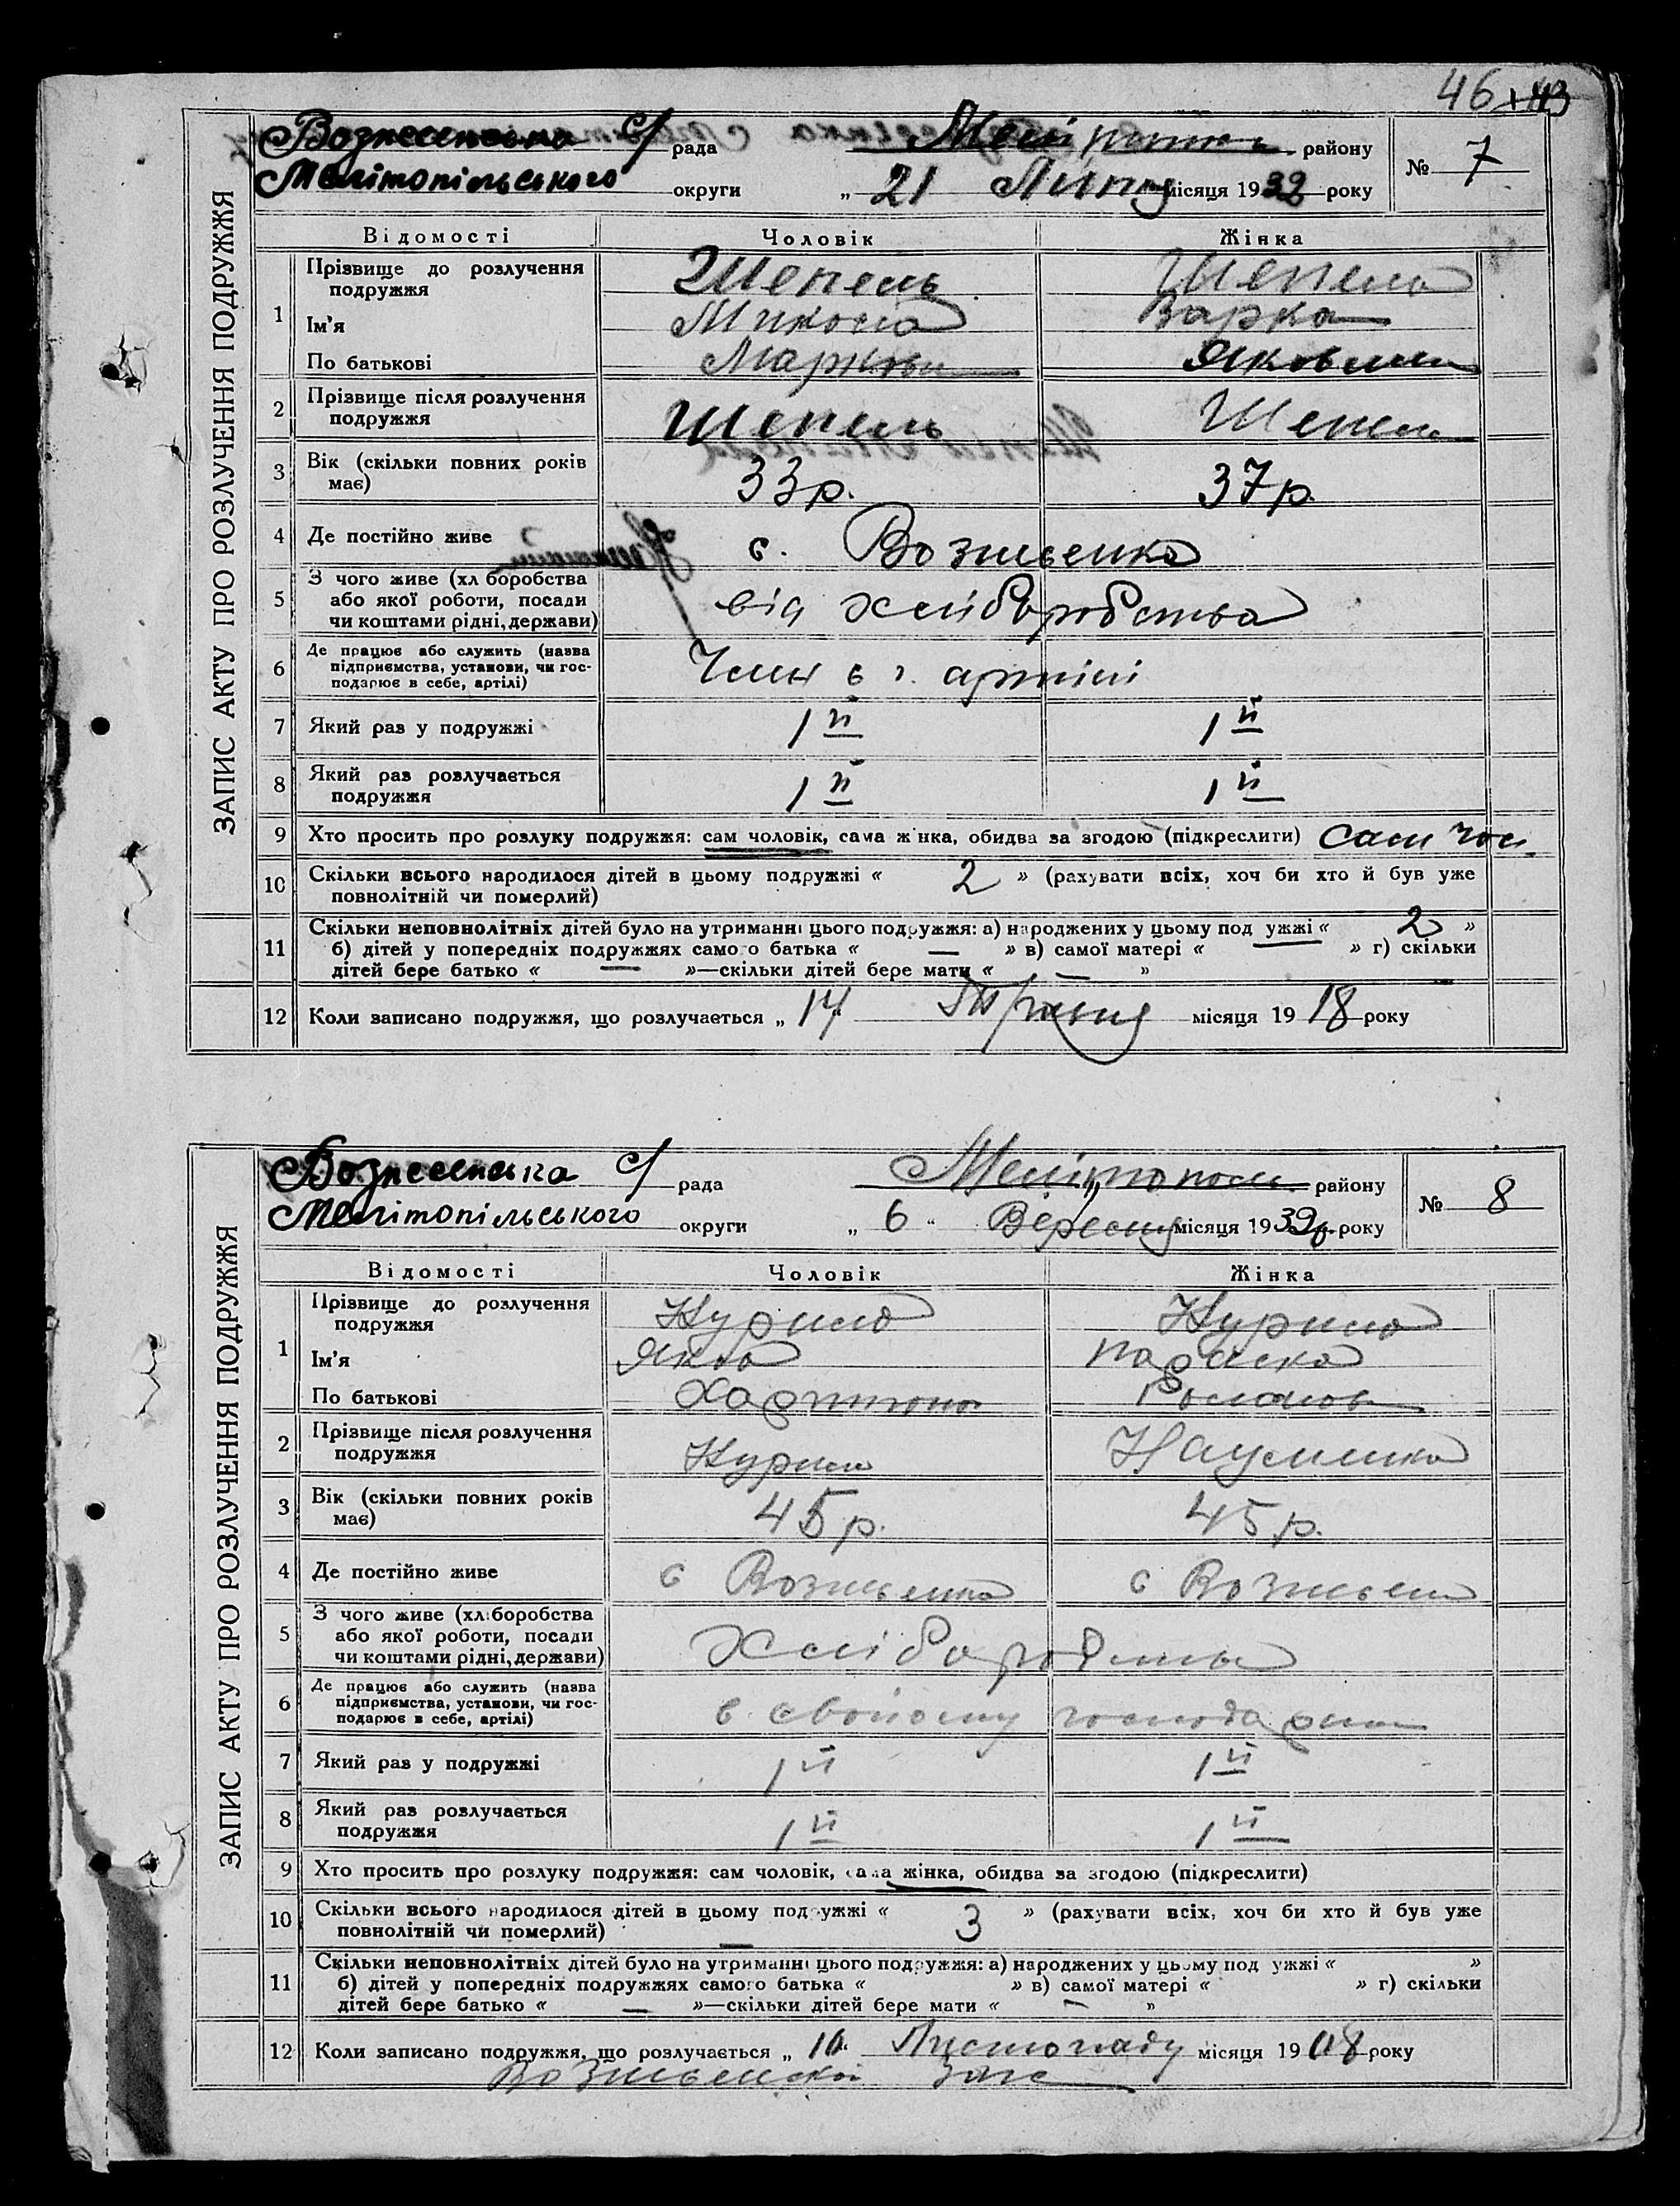 46 43
ЗАПИС АКТУ ПРО РОЗЛУЧЕННЯ ПОДРУЖЖЯ
Вознесенська с/ рада Меліт району № 7
Мелітопільського округи „ 21 Липня місяця 1932 року
Відомості Чоловік Жінка
1 Прізвище до розлучення подружжя Шепель Шепель
Ім'я Микола Варка
По батькові Маркович Яковлевн
2 Прізвище після розлучення подружжя Шепель Шепель
3 Вік (скільки повних років має) 33 р. 37 р.
4 Де постійно живе с. Вознесенка
5 З чого живе (хліборобства або якої роботи, посади чи коштами рідні, держави) від хліборобства
6 Де працює або служить (назва підприємства, установи, чи господарює в себе, артілі) Член с г. артілі
7 Який раз у подружжі 1й 1й
8 Який раз розлучається подружжя 1й 1й
9 Хто просить про розлуку подружжя: сам чоловік, сама жінка, обидва за згодою (підкреслити) Сам чол.
10 Скільки всього народилося дітей в цьому подружжі « 2 » (рахувати всіх, хоч би хто й був уже
повнолітній чи померлий)
11 Скільки неповнолітніх дітей було на утриманні цього подружжя: а) народжених у цьому под ужжі « 2 »
б) дітей у попередніх подружжях самого батька « — » в) самої матері « » г) скільки
дітей бере батько « — »—скільки дітей бере мати « — »
12 Коли записано подружжя, що розлучається „ 14 Травня місяця 1918 року
ЗАПИС АКТУ ПРО РОЗЛУЧЕННЯ ПОДРУЖЖЯ
Вознесенська с/ рада Мелітополь району № 8
Мелітопільського округи „ 6 " Вересня місяця 1932 року
Відомості Чоловік Жінка
1 Прізвище до розлучення подружжя Курило Курило
Ім'я Яков Параска
По батькові Харитонов Романов
2 Прізвище після розлучення подружжя Курило Науменко
3 Вік (скільки повних років має) 45 р. 45 р.
4 Де постійно живе с Вознесенка с Вознесен
5 З чого живе (хліборобства або якої роботи, посади чи коштами рідні, держави) Хліборобства
6 Де працює або служить (назва підприємства, установи, чи господарює в себе, артілі) в своїому господарстві
7 Який раз у подружжі 1й 1й
8 Який раз розлучається подружжя 1й 1й
9 Хто просить про розлуку подружжя: сам чоловік, сама жінка, обидва за згодою (підкреслити)
10 Скільки всього народилося дітей в цьому подружжі « 3 » (рахувати всіх, хоч би хто й був уже
повнолітній чи померлий)
11 Скільки неповнолітніх дітей було на утриманні цього подружжя: а) народжених у цьому под ужжі « »
б) дітей у попередніх подружжях самого батька « » в) самої матері « » г) скільки
дітей бере батько « — »—скільки дітей бере мати « — »
12 Коли записано подружжя, що розлучається „ 10 Листопаду місяця 1908 року
Вознесенской загс